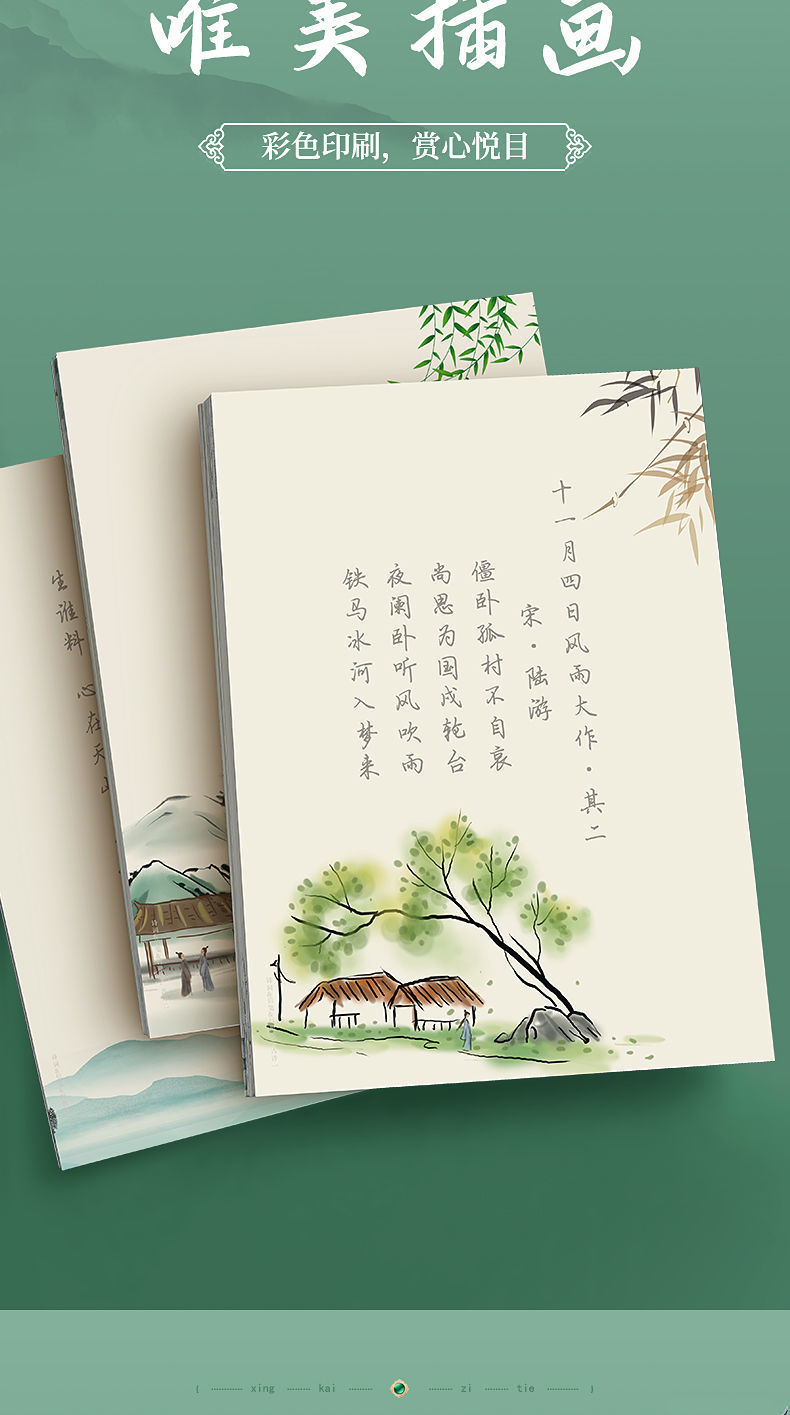 唯美插画
彩色印刷，赏心悦目
十一月四日风雨大作·其二
宋·陆游
僵卧孤村不自哀
尚思为国戍轮台
夜阑卧听风吹雨
铁马冰河入梦来
生谁料 心在天山
xing kai zi tie